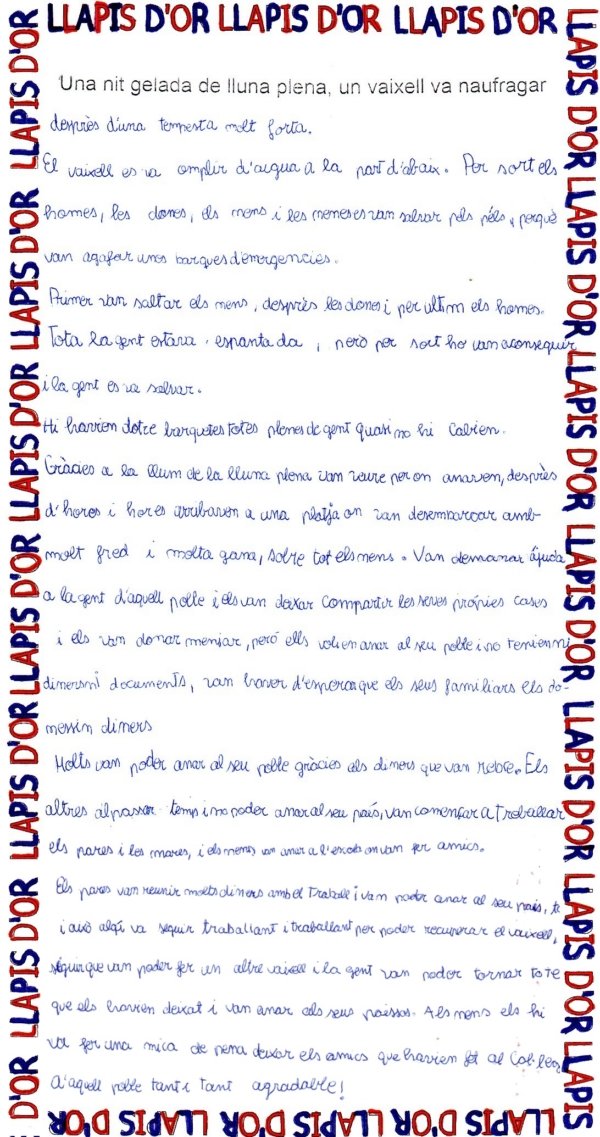 LLAPIS D'OR LLAPIS D'OR LLAPIS D'OR
Una nit gelada de lluna plena, un vaixell va naufragar
desprès d'una tempesta molt forta.
El vaixell es va omplir d'aigua a la part d'abaix. Per sort els
homes, les dones, els nens i les nenes es van salvar pels pèls, perquè
van agafar unes barques d'emergencies.
Primer van saltar els nens, desprès les dones i per ultim els homes.
Tota la gent estava espantada, però per sort ho van aconseguir
i la gent es va salvar.
Hi havien dotze barquetes totes plenes de gent quasi no hi cabien.
Gràcies a la llum de la lluna plena van veure per on anaven, desprès
d'hores i hores arribaven a una platja on van desembarcar amb
molt fred i molta gana, sobre tot els nens. Van demanar ajuda
a la gent d'aquell poble i els van deixar compartir les seves pròpies cases
i els van donar menjar, però ells volien anar al seu poble i no tenien ni
diners ni documents, van haver d'esperar que els seus familiars els do-
nessin diners
Molts van poder anar al seu poble gràcies als diners que van rebre. Els
altres al passar temps i no poder anar al seu país, van començar a treballar
els pares i les mares, i els nens van anar a l'escola on van fer amics.
Els pares van reunir molts diners amb el treball i van poder anar al seu país,
i això algú va seguir traballant i traballant per poder recuperar el vaixell,
que van poder fer un altre vaixell i la gent van poder tornar tot e
que els havien deixat i van anar als seus països. Als nens els hi
va fer una mica de pena deixar els amics que havien fet al Col·legi
d'aquell poble tant i tant agradable!
LLAPIS D'OR LLAPIS D'OR LLAPIS D'OR